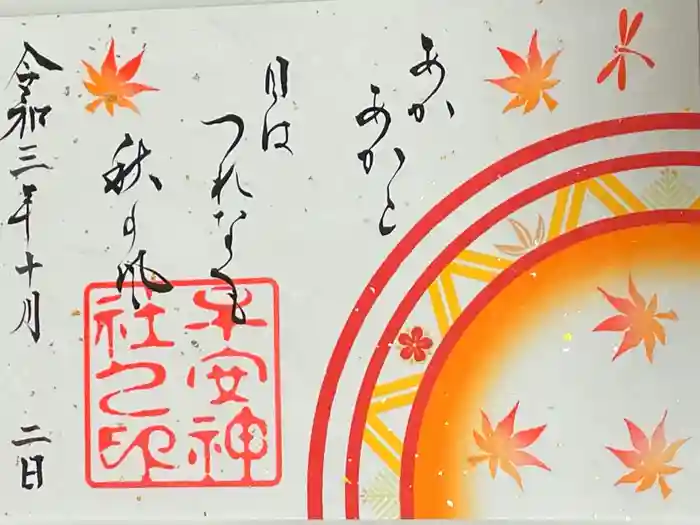 あか
あかと
日は
つれなくも
秋の風
令和三年十月
二日
平安神
社之印